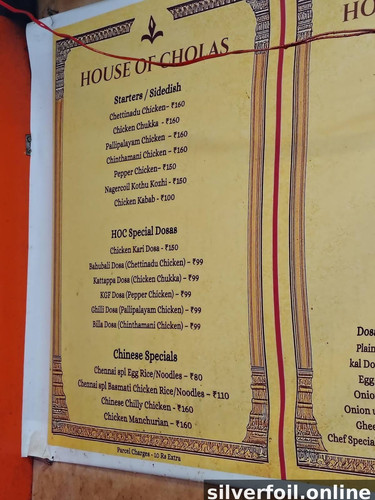 HOUSE OF CHOLAS
Starters / Sidedish
Chettinadu Chicken- ₹160
Chicken Chukka - ₹160
Pallipalayam Chicken - ₹160
Chinthamani Chicken - ₹160
Pepper Chicken- ₹150
Nagercoil Kothu Kozhi - ₹150
Chicken Kabab - ₹100
HOC Special Dosas
Chicken Kari Dosa - ₹150
Bahubali Dosa (Chettinadu Chicken) - ₹99
Kattappa Dosa (Chicken Chukka) - ₹99
KGF Dosa (Pepper Chicken) - ₹99
Ghilli Dosa (Pallipalayam Chicken) - ₹99
Billa Dosa (Chinthamani Chicken) - ₹99
Chinese Specials
Chennai spl Egg Rice/Noodles - ₹80
Chennai spl Basmati Chicken Rice/Noodles - ₹110
Chinese Chilly Chicken - ₹160
Chicken Manchurian - ₹160
Parcel Charges - 10 Rs Extra
HO
Dosa
Plain
kal Do
Egg
Onio
Onion u
Ghee
Chef Special
silverfoil.online